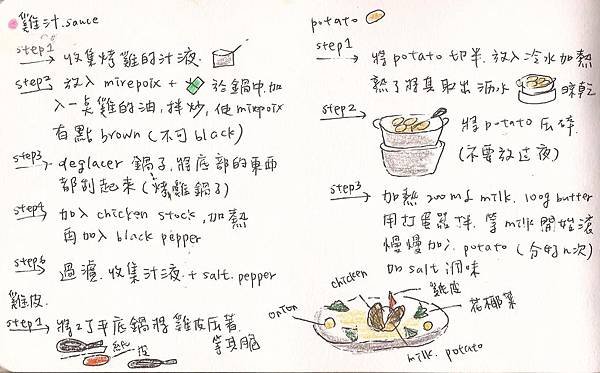 雞汁.sauce
step1 收集烤雞的汁液.
step2 放入 mirepoix + 於鍋中.加
入一点雞的油,拌炒,使 mirepoix
有點 brown (不可 black)
step3 deglacer 鍋子,將底部的東西
都刮起來 (烤雞鍋子)
step4 加入 chicken stock,加熱
再加入 black pepper
step5 過濾.收集汁液 + salt.pepper
雞皮.
step1 將2个平底鍋將雞皮压著.
等其脆
皮
potato
step1
將 potato 切半.放入冷水加熱
熟了將其取出瀝水 晾乾
step2
將 potato 压碎.
(不要放过夜)
step3
加熱 200ml milk. 100g butter
用打蛋器拌.等 milk 開始滾
慢慢加入 potato (分好n次)
加 salt 調味
chicken
雞皮
onion
花椰菜
milk. potato